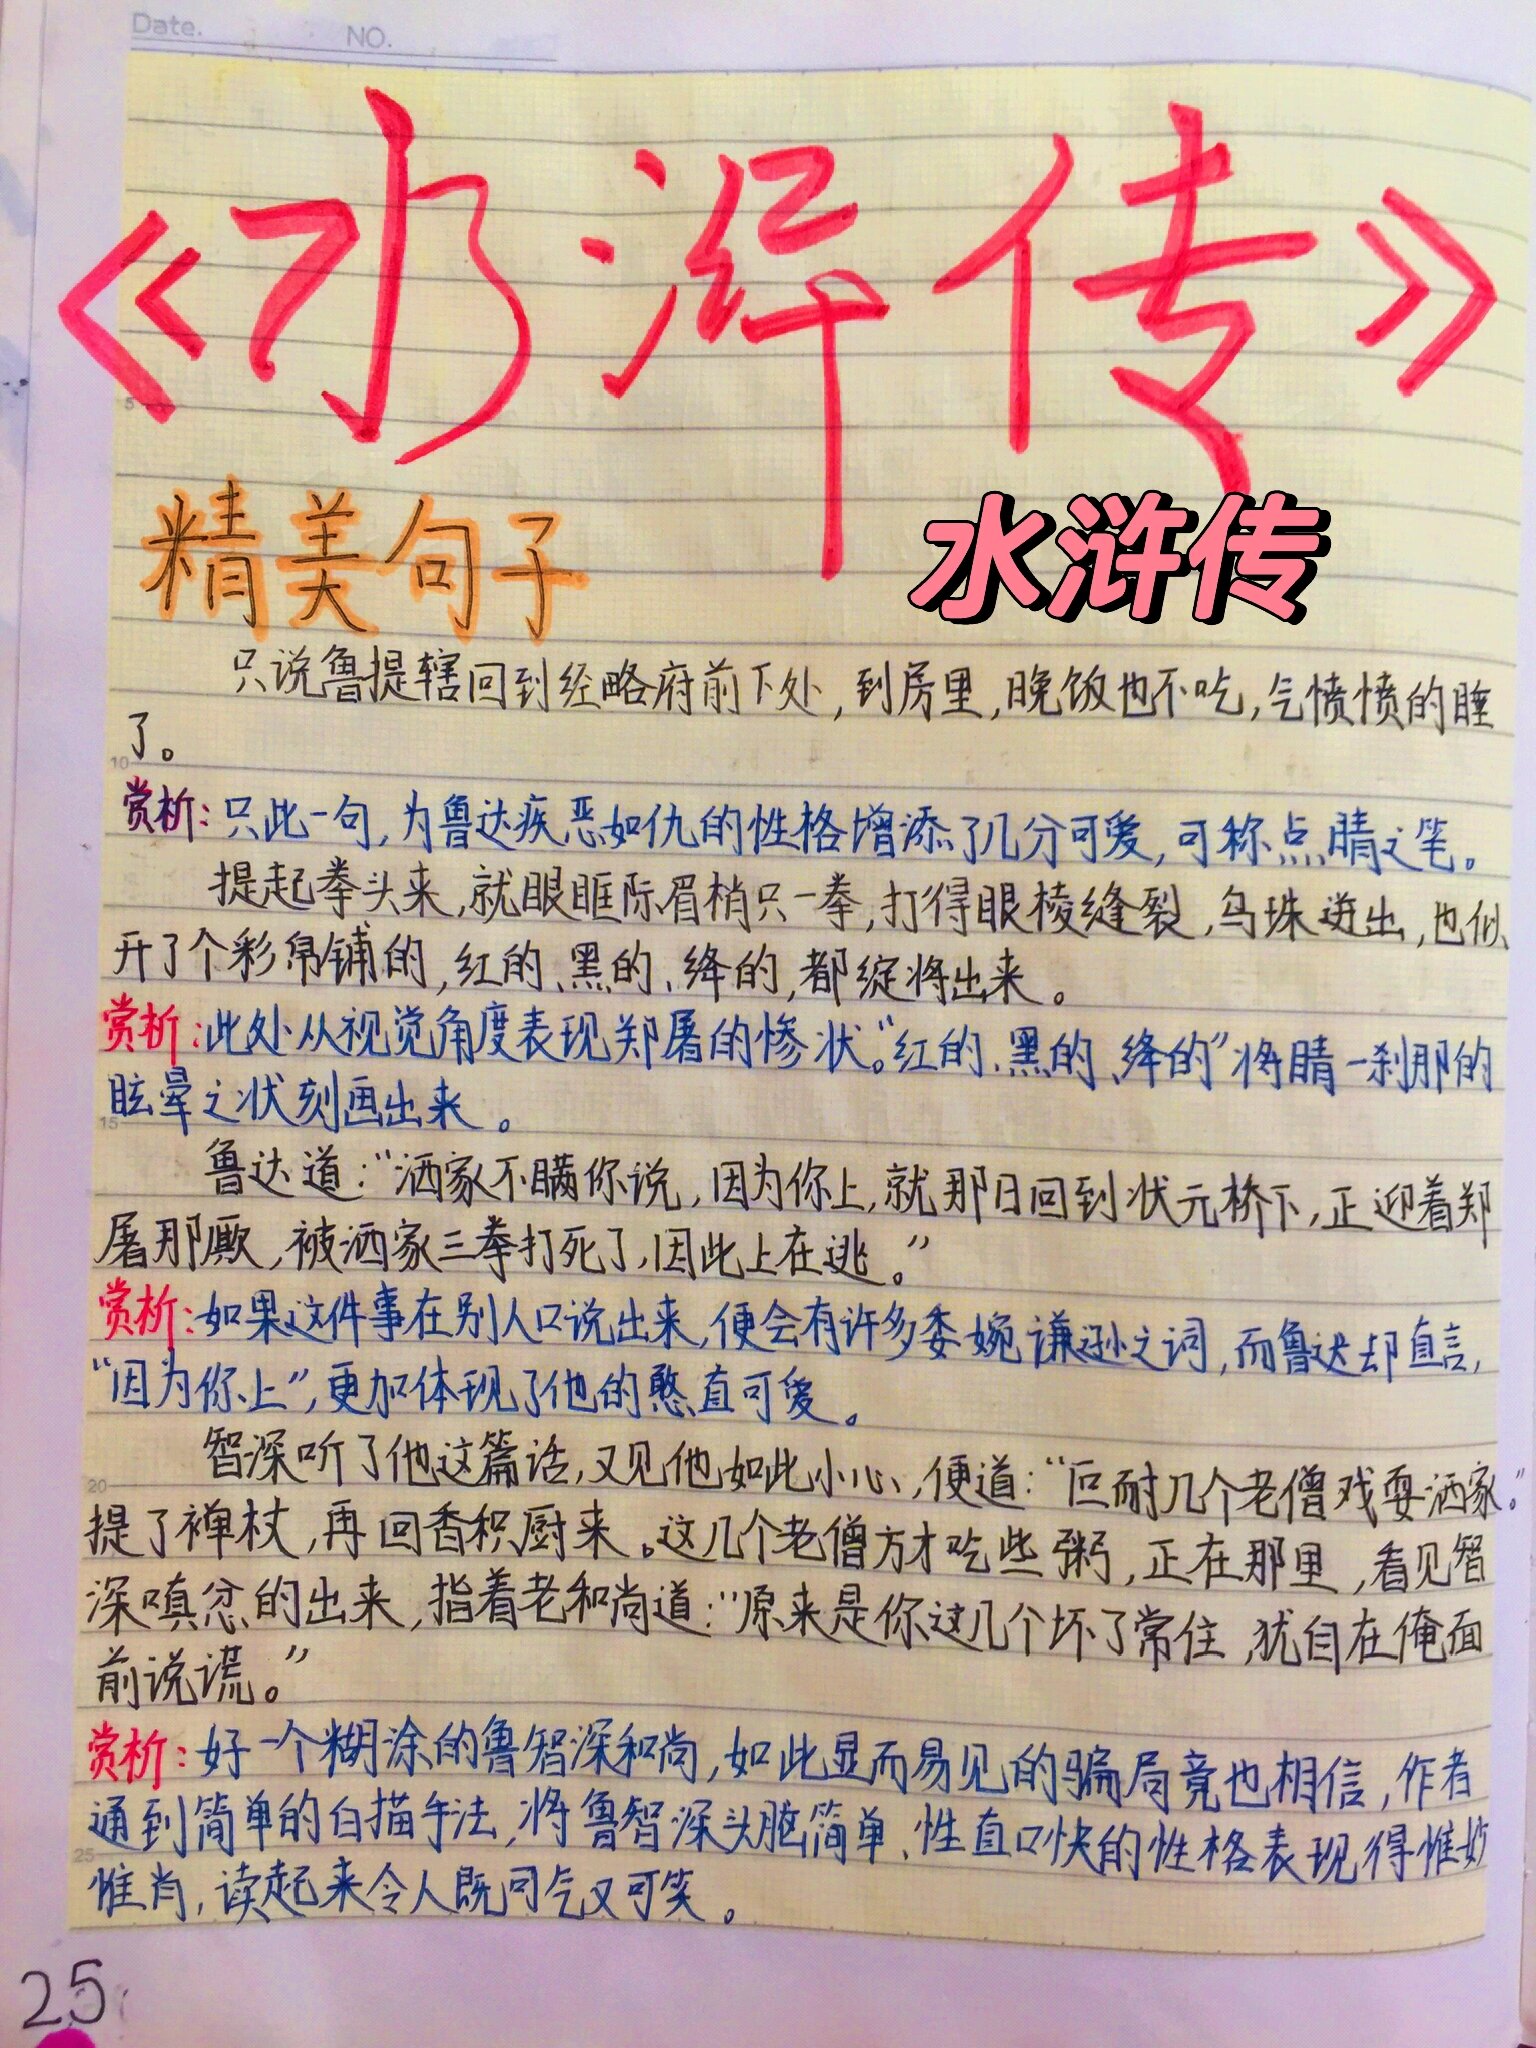 Date.
NO.
《水浒传》
精美句子
水浒传
只说鲁提辖回到经略府前下处,到房里,晚饭也不吃,气愤愤的睡
了。
赏析:只此一句,为鲁达疾恶如仇的性格增添了几分可爱,可称点睛之笔。
提起拳头来,就眼眶际眉梢只一拳,打得眼棱缝裂,乌珠迸出,也似
开了个彩帛铺的,红的、黑的、绛的,都绽将出来。
赏析:此处从视觉角度表现郑屠的惨状。“红的、黑的、绛的”将睛一刹那的
眩晕之状刻画出来。
鲁达道:“洒家不瞒你说,因为你上,就那日回到状元桥下,正迎着郑
屠那厮,被洒家三拳打死了,因此上在逃。”
赏析:如果这件事在别人口说出来,便会有许多委婉谦逊之词,而鲁达却直言,
“因为你上”,更加体现了他的憨直可爱。
智深听了他这篇话,又见他如此小心,便道:“叵耐几个老僧戏耍洒家。”
提了禅杖,再回香积厨来。这几个老僧方才吃些粥,正在那里,看见智
深嗔忿的出来,指着老和尚道:“原来是你这几个坏了常住,犹自在俺面
前说谎。”
赏析:好一个糊涂的鲁智深和尚,如此显而易见的骗局竟也相信,作者
通到简单的白描手法,将鲁智深头脑简单、性直口快的性格表现得惟妙
惟肖,读起来令人既可气又可笑。
5
10
15
20
25
25